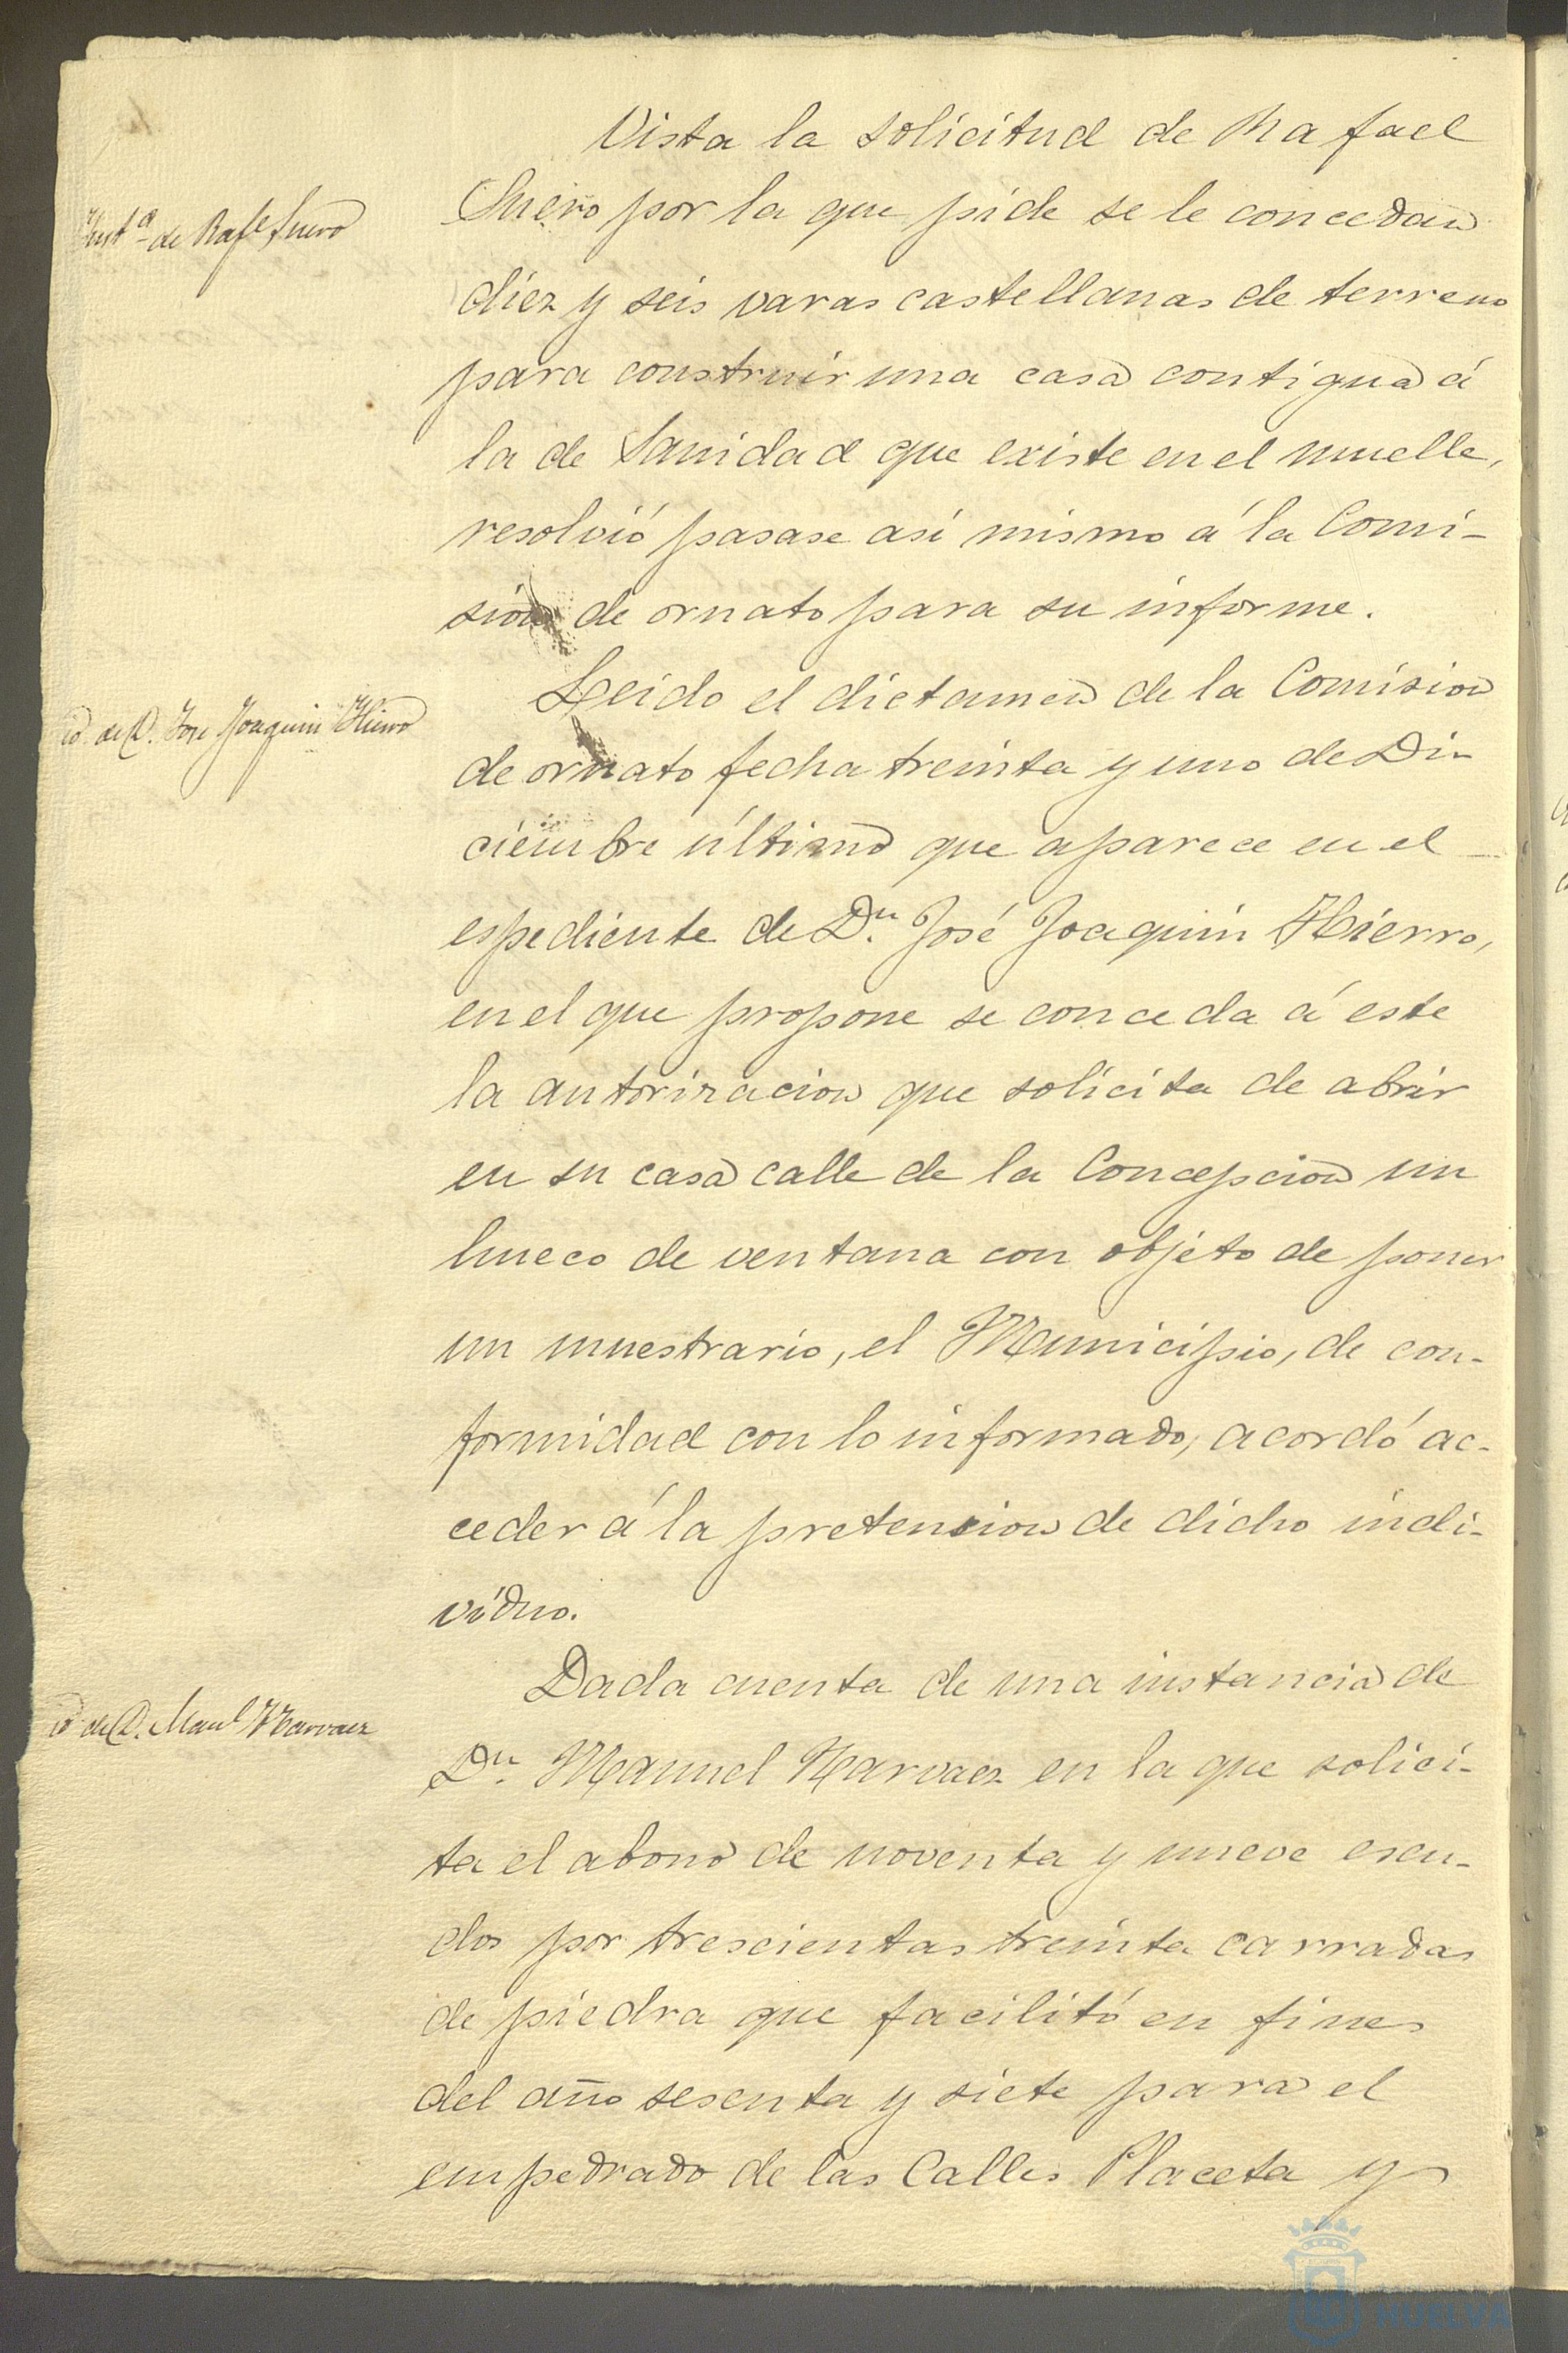 Vista la solicitud de Rafael
Inst.ª de Raf.l Suero
Suero por la que pide se le concedan
diez y seis varas castellanas de terreno
para construir una casa contigua á
la de Sanidad que existe en el muelle,
resolvió pasase asi mismo á la Comi-
sion de ornato para su informe.
Leido el dictamen de la Comision
id. de D. Jose Joaquin Hierro
de ornato fecha treinta y uno de Di-
ciembre último que aparece en el
espediente de D.n José Joaquin Hierro,
en el que propone se conceda á este
la autorizacion que solicita de abrir
en su casa calle de la Concepcion un
hueco de ventana con objeto de poner
un muestrario, el Municipio, de con-
formidad con lo informado, acordó ac-
ceder á la pretension de dicho indi-
víduo.
Dada cuenta de una instancia de
id. de D. Man.l Narvaez
D.n Manuel Narvaez en la que solici-
ta el abono de noventa y nueve escu-
dos por trescientas treinta carradas
de piedra que facilitó en fines
del año sesenta y siete para el
empedrado de las Calles Placeta y
HUELVA